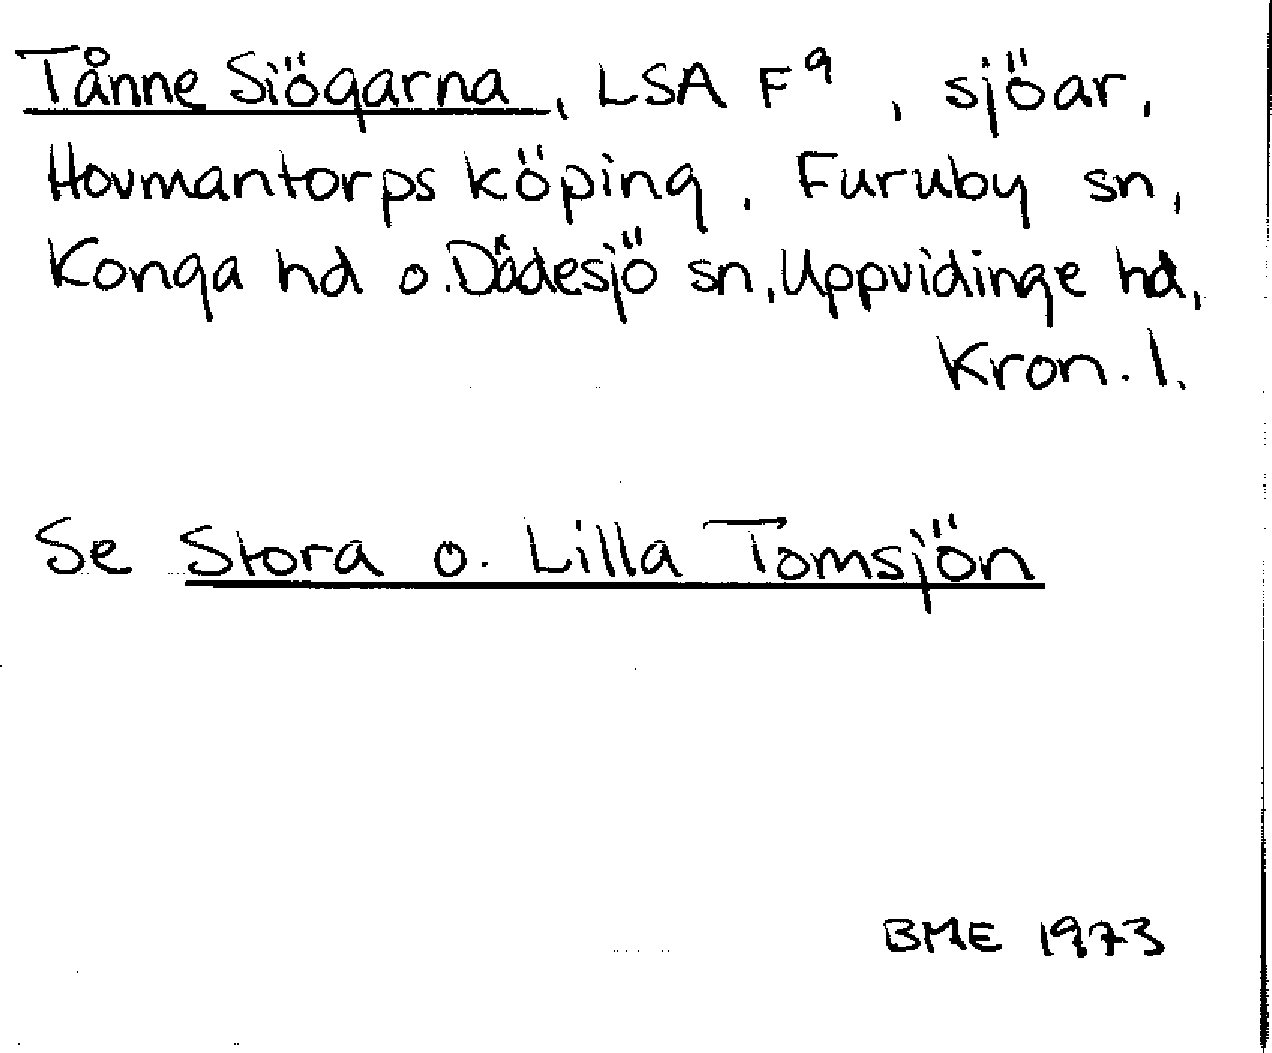 Tånne Siögarna, LSA F⁹, sjöar,
Hovmantorps köping, Furuby sn,
Konga hd o. Dädesjö sn, Uppvidinge hd,
Kron. l.
Se Stora o. Lilla Tomsjön
BME 1973